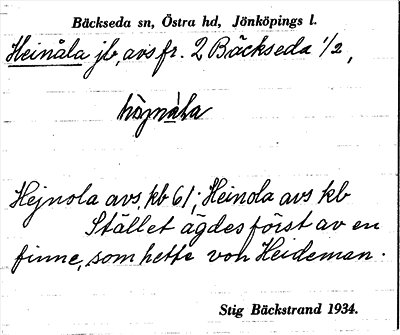 Bäckseda sn, Östra hd, Jönköpings l.
Heinåla jb, avs fr. 2 Bäckseda 1/2,
hòjnàla
Hejnola avs, kb 61; Heinola avs kb
Stället ägdes först av en
finne, som hette von Heideman.
Stig Bäckstrand 1934.